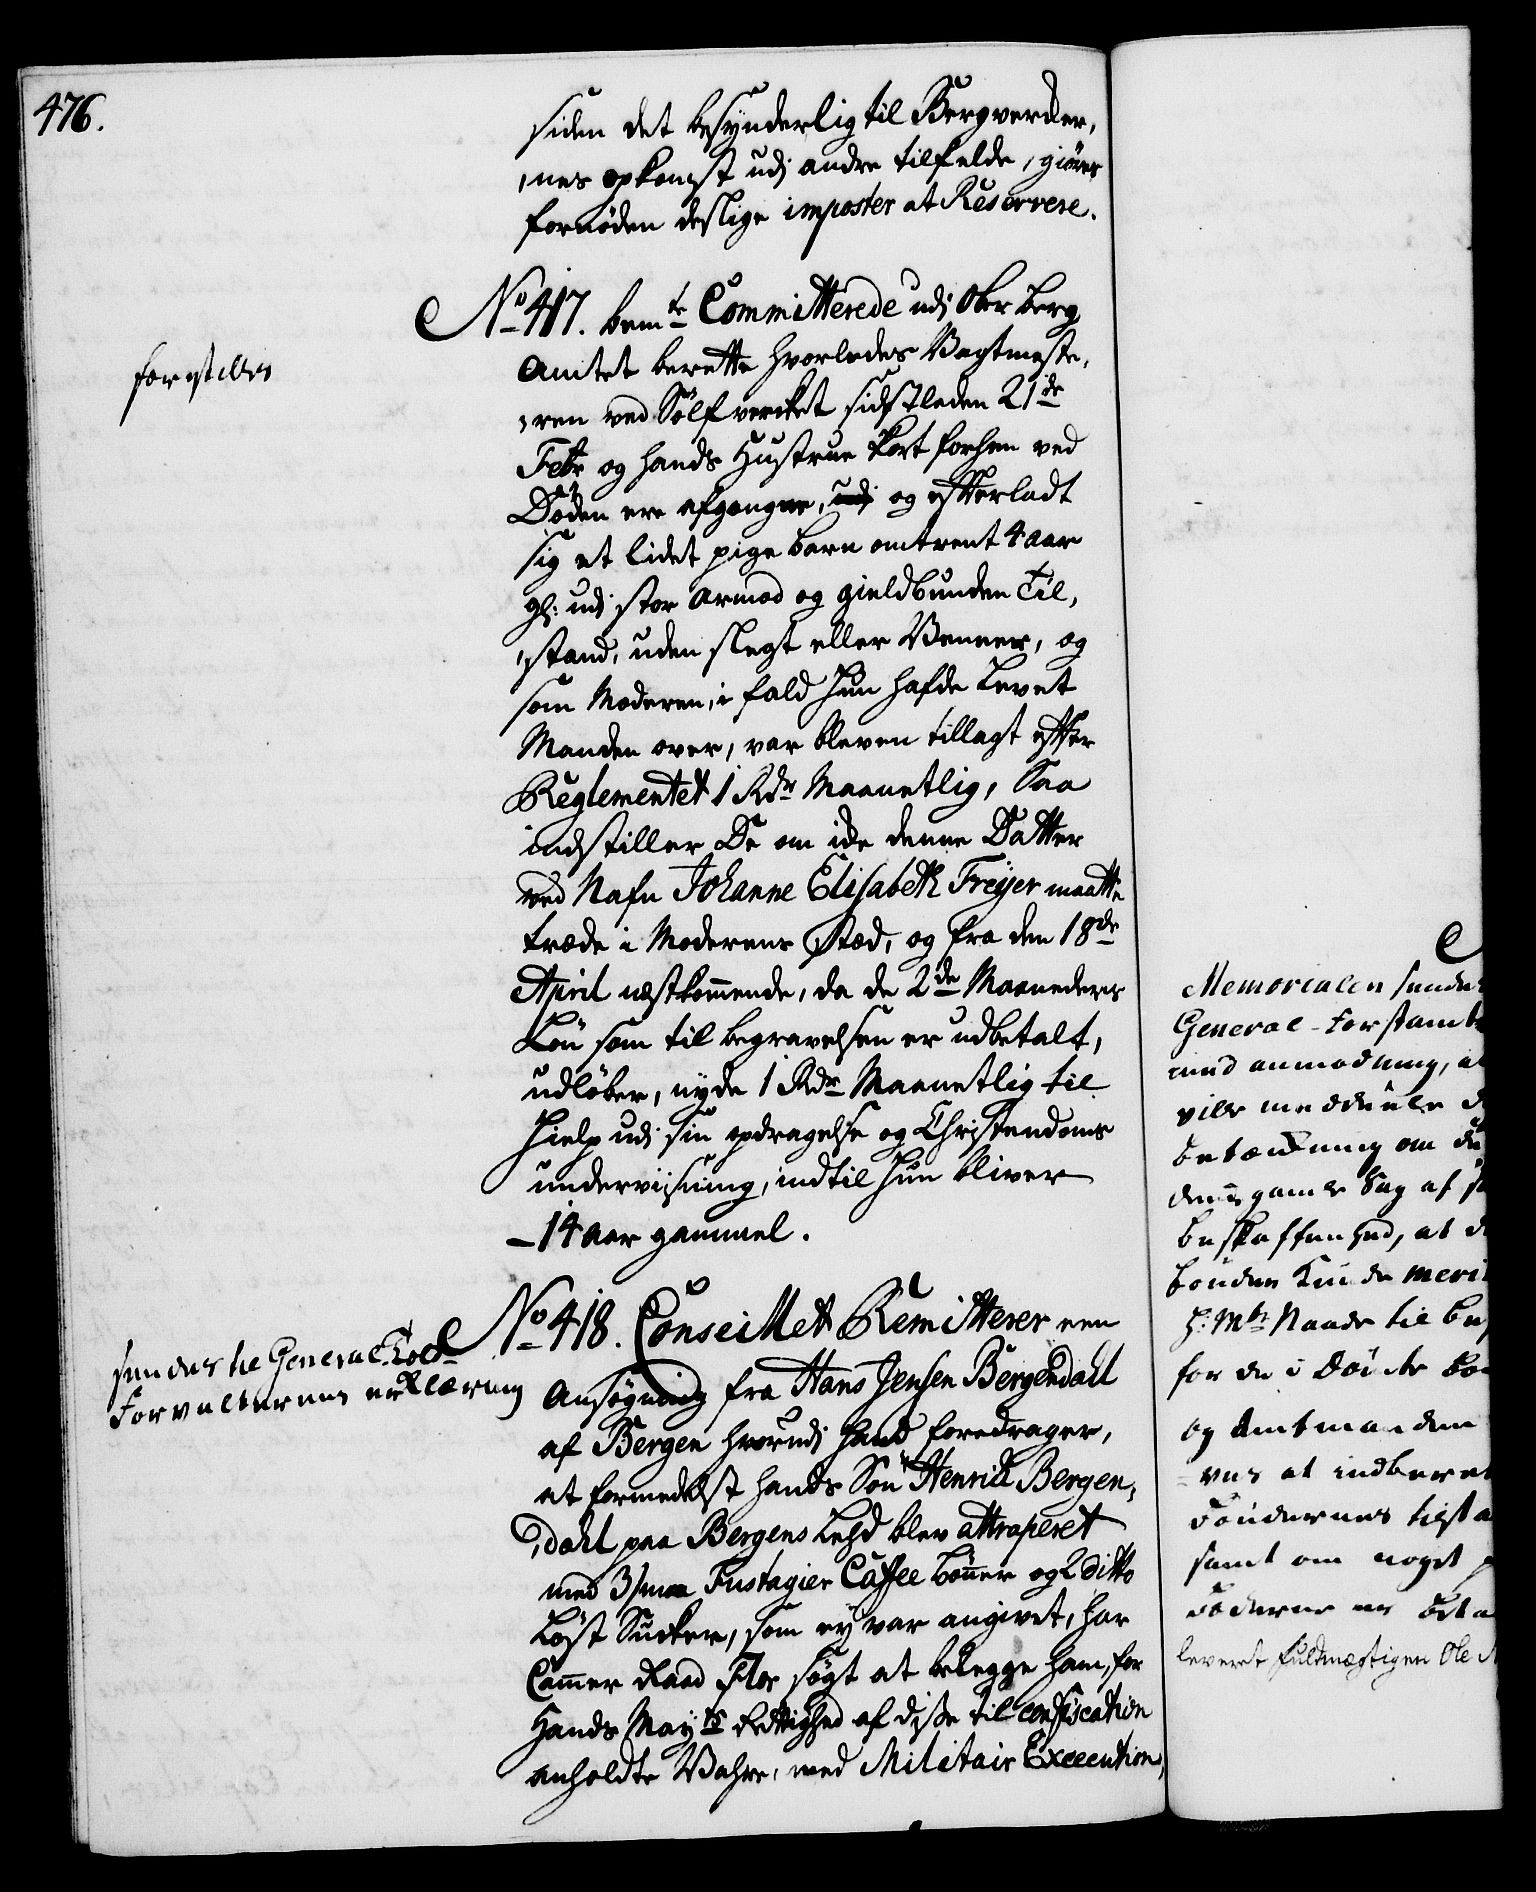 476.
siden det besynderlig til Bergverker,
,nes opkomst udj andre tilfelde, giöres
fornöden deslige imposter at Reservere.
No 417. bemte Committerede udj Ober Berg
Amtet berette hvorledes Vagtmeste,
,ren ved Sölfverket sidstleden 21de
Febr og hands Hustrue kort forhen ved
Döden ere afgangne, udj og efterladt
sig et lidet pige barn omtrent 4 aar
gl: udj stor armod og gieldbunden Til,
,stand, uden slegt eller Venner, og
som Moderen, i fald hun hafde levet
Manden over, var bleven tillagt efter
Reglementet 1 Rdr Maanetlig, Saa
indstiller De om icke denne Datter
ved Nafn Johanne Elisabeth Freyer maatte
træde i Moderens Stæd, og fra den 18de
April næstkommende, da de 2de Maaneders
Lön som til begravelsen er udbetalt,
udlöber, nyde 1 Rdr Maanetlig til
Hielp udj sin opdragelse og Christendoms
underviisning, indtil hun bliver
14 aar gammel.
forestilles
No 418. Conseillet Remitterer een
Ansögning fra Hans Jensen Bergendahl
af Bergen hvorudj hand foredrager,
at formedelst hands Sön Henrich Bergen,
,dahl paa Bergens Leyd blev attraperet
med 3 smaa Fustagier Caffee bönner og 2 ditto
Löst Sucker, som ey var angivet, har
Cammer Raad Flor sögt at belegge ham, for
Hands Mayts Rettighed af disse til confiscation
anholdte Vahre, med Militair Execution,
sendes til General Told
Forvalterens erklæring
Memorialen sendes
General-Forstamt
med anmodning, at
ville meddeele
betænkning om
denne gamle Sag af
beskaffenhed, at
bonden kunde meri
H: Mts Naade til
for de i
og Amtmanden
at indberet
Föndernes tilsta
samt om noget
leveret fuldmægtigen Ole